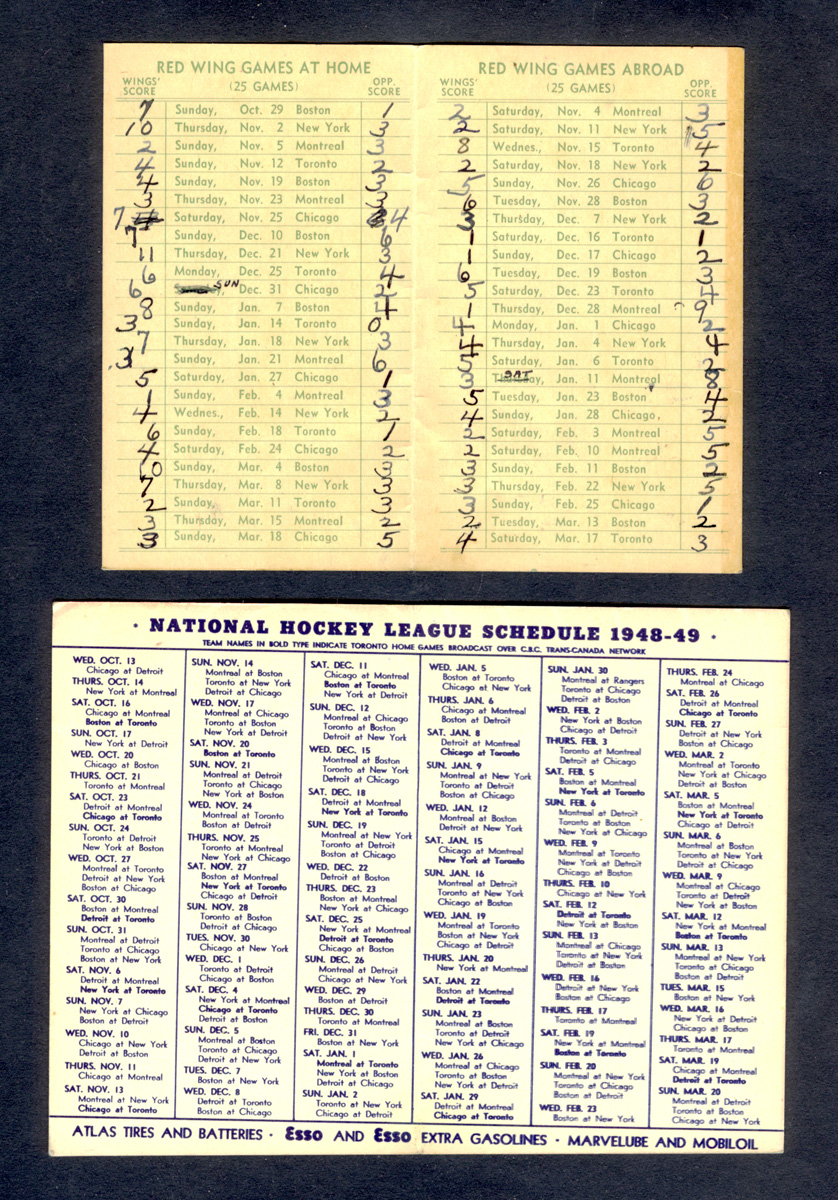 RED WING GAMES AT HOME
(25 GAMES)
WINGS' SCORE
OPP. SCORE
7 Sunday, Oct. 29 Boston 1
10 Thursday, Nov. 2 New York 3
2 Sunday, Nov. 5 Montreal 3
4 Sunday, Nov. 12 Toronto 2
4 Sunday, Nov. 19 Boston 3
3 Thursday, Nov. 23 Montreal 3
7 Saturday, Nov. 25 Chicago 4
7 Sunday, Dec. 10 Boston 6
11 Thursday, Dec. 21 New York 3
6 Monday, Dec. 25 Toronto 4
6 SUN Dec. 31 Chicago 2
8 Sunday, Jan. 7 Boston 4
3 Sunday, Jan. 14 Toronto 0
7 Thursday, Jan. 18 New York 3
3 Sunday, Jan. 21 Montreal 6
5 Saturday, Jan. 27 Chicago 1
1 Sunday, Feb. 4 Montreal 3
4 Wednes., Feb. 14 New York 2
6 Sunday, Feb. 18 Toronto 1
4 Saturday, Feb. 24 Chicago 2
Sunday, Mar. 4 Boston 3
7 Thursday, Mar. 8 New York 3
2 Sunday, Mar. 11 Toronto 3
3 Thursday, Mar. 15 Montreal 2
3 Sunday, Mar. 18 Chicago 5
RED WING GAMES ABROAD
(25 GAMES)
WINGS' SCORE
OPP. SCORE
2 Saturday, Nov. 4 Montreal 3
2 Saturday, Nov. 11 New York 5
8 Wednes., Nov. 15 Toronto 4
2 Saturday, Nov. 18 New York 2
5 Sunday, Nov. 26 Chicago 6
6 Tuesday, Nov. 28 Boston 3
3 Thursday, Dec. 7 New York 2
1 Saturday, Dec. 16 Toronto 1
1 Sunday, Dec. 17 Chicago 2
6 Tuesday, Dec. 19 Boston 3
5 Saturday, Dec. 23 Toronto 4
1 Thursday, Dec. 28 Montreal 9
4 Monday, Jan. 1 Chicago 2
4 Thursday, Jan. 4 New York 4
5 Saturday, Jan. 6 Toronto 2
3 Thursday, SAT Jan. 11 Montreal
5 Tuesday, Jan. 23 Boston 4
4 Sunday, Jan. 28 Chicago. 2
2 Saturday, Feb. 3 Montreal 5
2 Saturday, Feb. 10 Montreal 5
3 Sunday, Feb. 11 Boston 2
3 Thursday, Feb. 22 New York 5
3 Sunday, Feb. 25 Chicago 1
2 Tuesday, Mar. 13 Boston 2
4 Saturday, Mar. 17 Toronto 3
· NATIONAL HOCKEY LEAGUE SCHEDULE 1948-49 ·
TEAM NAMES IN BOLD TYPE INDICATE TORONTO HOME GAMES BROADCAST OVER C.B.C. TRANS-CANADA NETWORK
WED. OCT. 13
Chicago at Detroit
THURS. OCT. 14
New York at Montreal
SAT. OCT. 16
Chicago at Montreal
Boston at Toronto
SUN. OCT. 17
New York at Detroit
WED. OCT. 20
Chicago at Boston
THURS. OCT. 21
Toronto at Montreal
SAT. OCT. 23
Detroit at Montreal
Chicago at Toronto
SUN. OCT. 24
Toronto at Detroit
Boston at New York
WED. OCT. 27
Montreal at Toronto
Detroit at New York
Boston at Chicago
SAT. OCT. 30
Boston at Montreal
Detroit at Toronto
SUN. OCT. 31
Montreal at Detroit
Toronto at Chicago
Boston at New York
SAT. NOV. 6
Detroit at Montreal
New York at Toronto
SUN. NOV. 7
New York at Chicago
Boston at Detroit
WED. NOV. 10
Chicago at New York
Detroit at Boston
THURS. NOV. 11
Chicago at Montreal
SAT. NOV. 13
Montreal at New York
Chicago at Toronto
SUN. NOV. 14
Montreal at Boston
Toronto at New York
Detroit at Chicago
WED. NOV. 17
Montreal at Chicago
Toronto at Boston
New York at Detroit
SAT. NOV. 20
Boston at Toronto
SUN. NOV. 21
Montreal at Detroit
Toronto at Chicago
New York at Boston
WED. NOV. 24
Montreal at New York
Boston at Detroit
THURS. NOV. 25
Toronto at Montreal
New York at Chicago
SAT. NOV. 27
Boston at Montreal
New York at Toronto
Chicago at Detroit
SUN. NOV. 28
Toronto at Boston
Detroit at Chicago
TUES. NOV. 30
Chicago at New York
WED. DEC. 1
Toronto at Detroit
Chicago at Boston
SAT. DEC. 4
New York at Montreal
Chicago at Toronto
Boston at Detroit
SUN. DEC. 5
Montreal at Boston
Toronto at Chicago
Detroit at New York
TUES. DEC. 7
Boston at New York
WED. DEC. 8
Toronto at Detroit
Boston at Chicago
SAT. DEC. 11
Chicago at Montreal
Boston at Toronto
New York at Detroit
SUN. DEC. 12
Montreal at Chicago
Toronto at Boston
Detroit at New York
WED. DEC. 15
Montreal at Boston
Toronto at New York
Detroit at Chicago
SAT. DEC. 18
Detroit at Montreal
New York at Toronto
SUN. DEC. 19
Montreal at New York
Toronto at Detroit
Boston at Chicago
WED. DEC. 22
Detroit at Boston
THURS. DEC. 23
Boston at Montreal
Chicago at New York
SAT. DEC. 25
New York at Montreal
Detroit at Toronto
Chicago at Boston
SUN. DEC. 26
Montreal at Detroit
New York at Chicago
WED. DEC. 29
Boston at Detroit
THURS. DEC. 30
Toronto at Montreal
FRI. DEC. 31
Boston at New York
SAT. JAN. 1
Montreal at Toronto
New York at Boston
Detroit at Chicago
SUN. JAN. 2
Toronto at New York
Chicago at Detroit
WED. JAN. 5
Boston at Toronto
Chicago at New York
THURS. JAN. 6
Chicago at Montreal
SAT. JAN. 8
Detroit at Montreal
Chicago at Toronto
SUN. JAN. 9
Montreal at New York
Toronto at Detroit
Boston at Chicago
WED. JAN. 12
Montreal at Boston
Detroit at New York
SAT. JAN. 15
Chicago at Montreal
New York at Toronto
SUN. JAN. 16
Montreal at Detroit
Toronto at New York
Chicago at Boston
WED. JAN. 19
Montreal at Toronto
Boston at New York
Chicago at Detroit
THURS. JAN. 20
New York at Montreal
SAT. JAN. 22
Boston at Montreal
Detroit at Toronto
SUN. JAN. 23
Montreal at Boston
Toronto at Detroit
New York at Chicago
WED. JAN. 26
Montreal at Chicago
Toronto at Boston
New York at Detroit
SAT. JAN. 29
Detroit at Montreal
Chicago at Toronto
SUN. JAN. 30
Montreal at Rangers
Toronto at Chicago
Detroit at Boston
WED. FEB. 2
New York at Boston
Chicago at Detroit
THURS. FEB. 3
Toronto at Montreal
Detroit at Chicago
SAT. FEB. 5
Boston at Montreal
New York at Toronto
SUN. FEB. 6
Montreal at Detroit
Toronto at Boston
New York at Chicago
WED. FEB. 9
Montreal at Toronto
New York at Detroit
Boston at Chicago
THURS. FEB. 10
Chicago at New York
SAT. FEB. 12
Detroit at Toronto
New York at Boston
SUN. FEB. 13
Montreal at Chicago
Toronto at New York
Detroit at Boston
WED. FEB. 16
Detroit at New York
Boston at Chicago
THURS. FEB. 17
Toronto at Montreal
SAT. FEB. 19
New York at Montreal
Boston at Toronto
SUN. FEB. 20
Montreal at New York
Toronto at Chicago
Boston at Detroit
WED. FEB. 23
Boston at New York
THURS. FEB. 24
Montreal at Chicago
SAT. FEB. 26
Detroit at Montreal
Chicago at Toronto
SUN. FEB. 27
Detroit at New York
Boston at Chicago
WED. MAR. 2
Montreal at Toronto
New York at Chicago
Detroit at Boston
SAT. MAR. 5
Boston at Montreal
New York at Toronto
Chicago at Detroit
SUN. MAR. 6
Montreal at Boston
Toronto at Detroit
Chicago at New York
WED. MAR. 9
Montreal at Chicago
Toronto at Detroit
New York at Boston
SAT. MAR. 12
New York at Montreal
Boston at Toronto
SUN. MAR. 13
Montreal at Detroit
Toronto at Chicago
New York at Boston
TUES. MAR. 15
Boston at New York
WED. MAR. 16
New York at Detroit
Chicago at Boston
THURS. MAR. 17
Toronto at Montreal
SAT. MAR. 19
Chicago at Montreal
Detroit at Toronto
SUN. MAR. 20
Montreal at Detroit
Toronto at Boston
Chicago at New York
ATLAS TIRES AND BATTERIES · Esso AND Esso EXTRA GASOLINES · MARVELUBE AND MOBILOIL